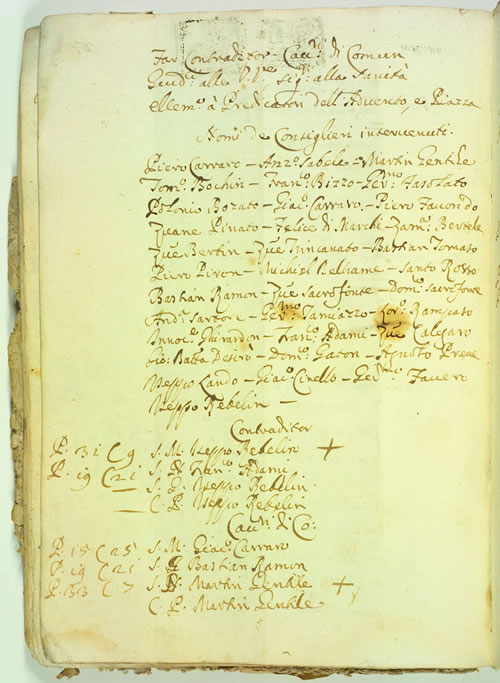 Far Contraditor – Cau.ri di Comun
Giud.i alle Vie sig.i alla Sanità
ellem.e à Predicatori dell'Advento, e Piazza
Nomi de Consiglieri intervenuti.
Piero Carraro – Anz.o Sabele – Martin Gentile
Tom.o Bochin – Fran.co Bizzo – Ger.mo Fasolato
Polonio Bozato – Giac.o Carraro – Piero Facondo
Zuane Pinato – Felice di Marchi – Zam.
Zue Bertin – Zue Tuncanato – Bastian Tomaso
Piero Piron – Michiel Beltrame – Santo Rosso
Bastian Ramon – Zue Sacrofonte – Dom.o Sacrofonte
And.a Sartore – Ger.mo Tamiazzo – Lor.o Rampato
Innoc.o Ghirardon – Fran.co Adami – Zue Calegaro
Gio: Batta – Dom.o Gaton – Agnolo
Meppo Lando – Giac.o Cinello – Ger.mo Favero
Meppo Rebelin –
Contraditor
P. 31 C 9 S. M. Meppo Rebelin +
P. 19 C 21 S. N. Fran.co Adami
S. G. Meppo Rebelin
C. P. Meppo Rebelin
Cau.ri di Co:
P. 15 C 25 S. M. Giac.o Carraro
P. 19 C 21 S. P. Bastian Ramon
P. 33 C 7 S. N. Martin Gentile +
C. P. Martin Gentile